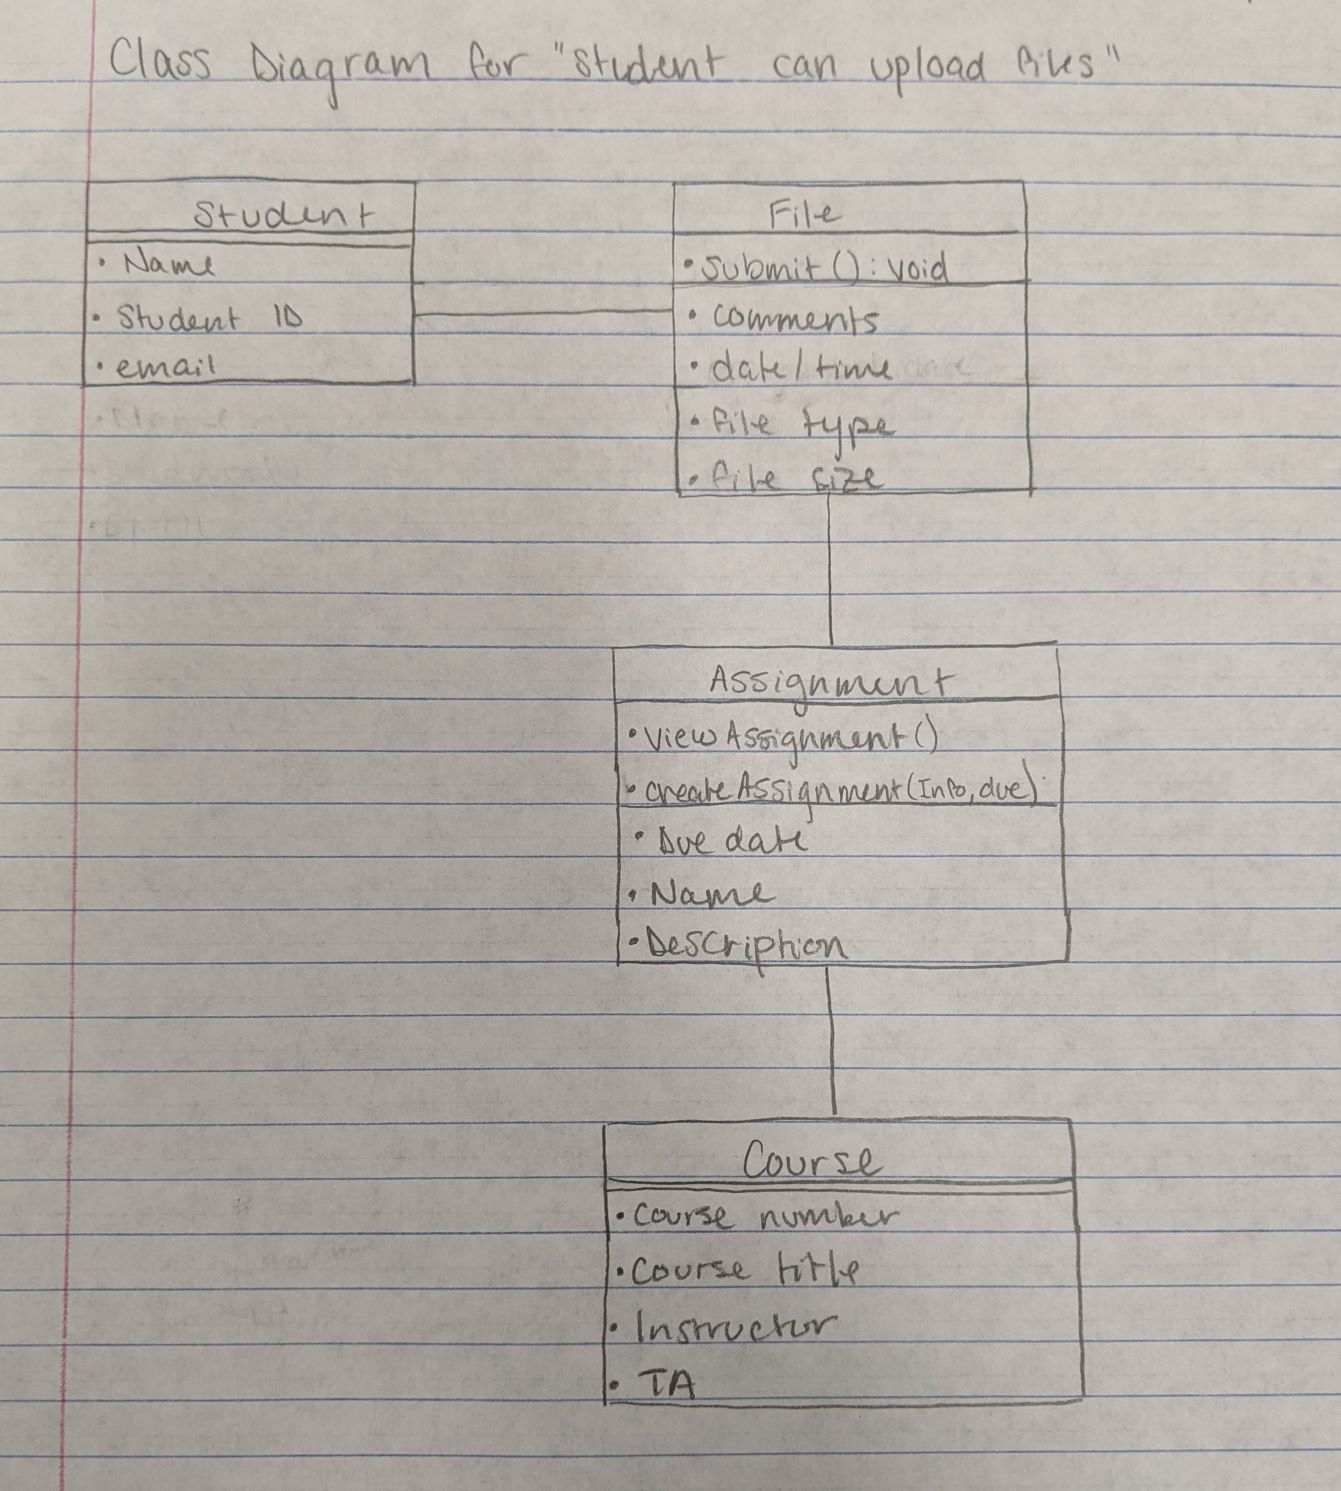 Class Diagram for "Student can upload files"
Student
• Name
• Student ID
• email
File
• submit() : void
• comments
• date/time
• file type
• file size
Assignment
• viewAssignment()
• createAssignment(Info, due)
• Due date
• Name
• Description
Course
• Course number
• Course title
• Instructor
• TA